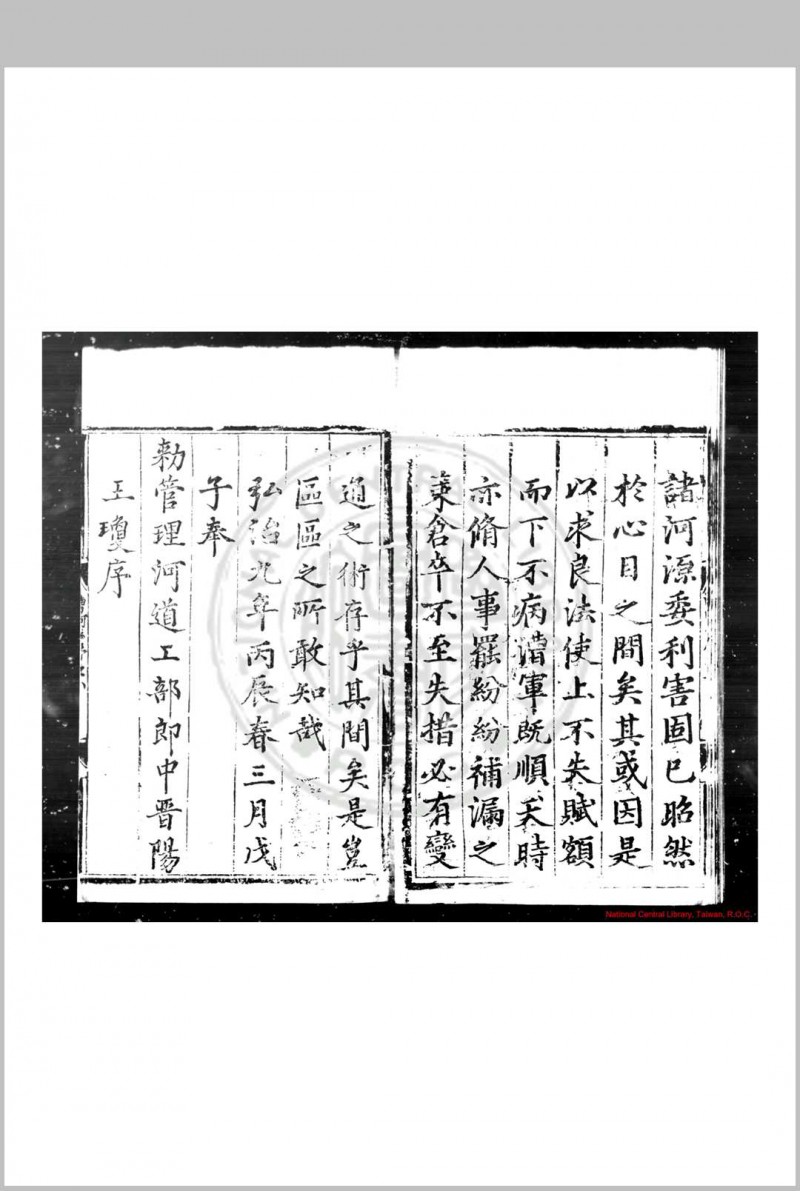 諸河源委利害固已昭然
於心目之間矣其或因是
以求良法使上不失賦額
而下不病漕軍既順天時
亦脩人事罷紛紛補漏之
策倉卒不至失措必有變
通之術存乎其間矣是豈
區區之所敢知哉
弘治九年丙辰春三月戊
子奉
勑管理河道工部郎中晋陽
王瓊序
National Central Library, Taiwan, R.O.C.